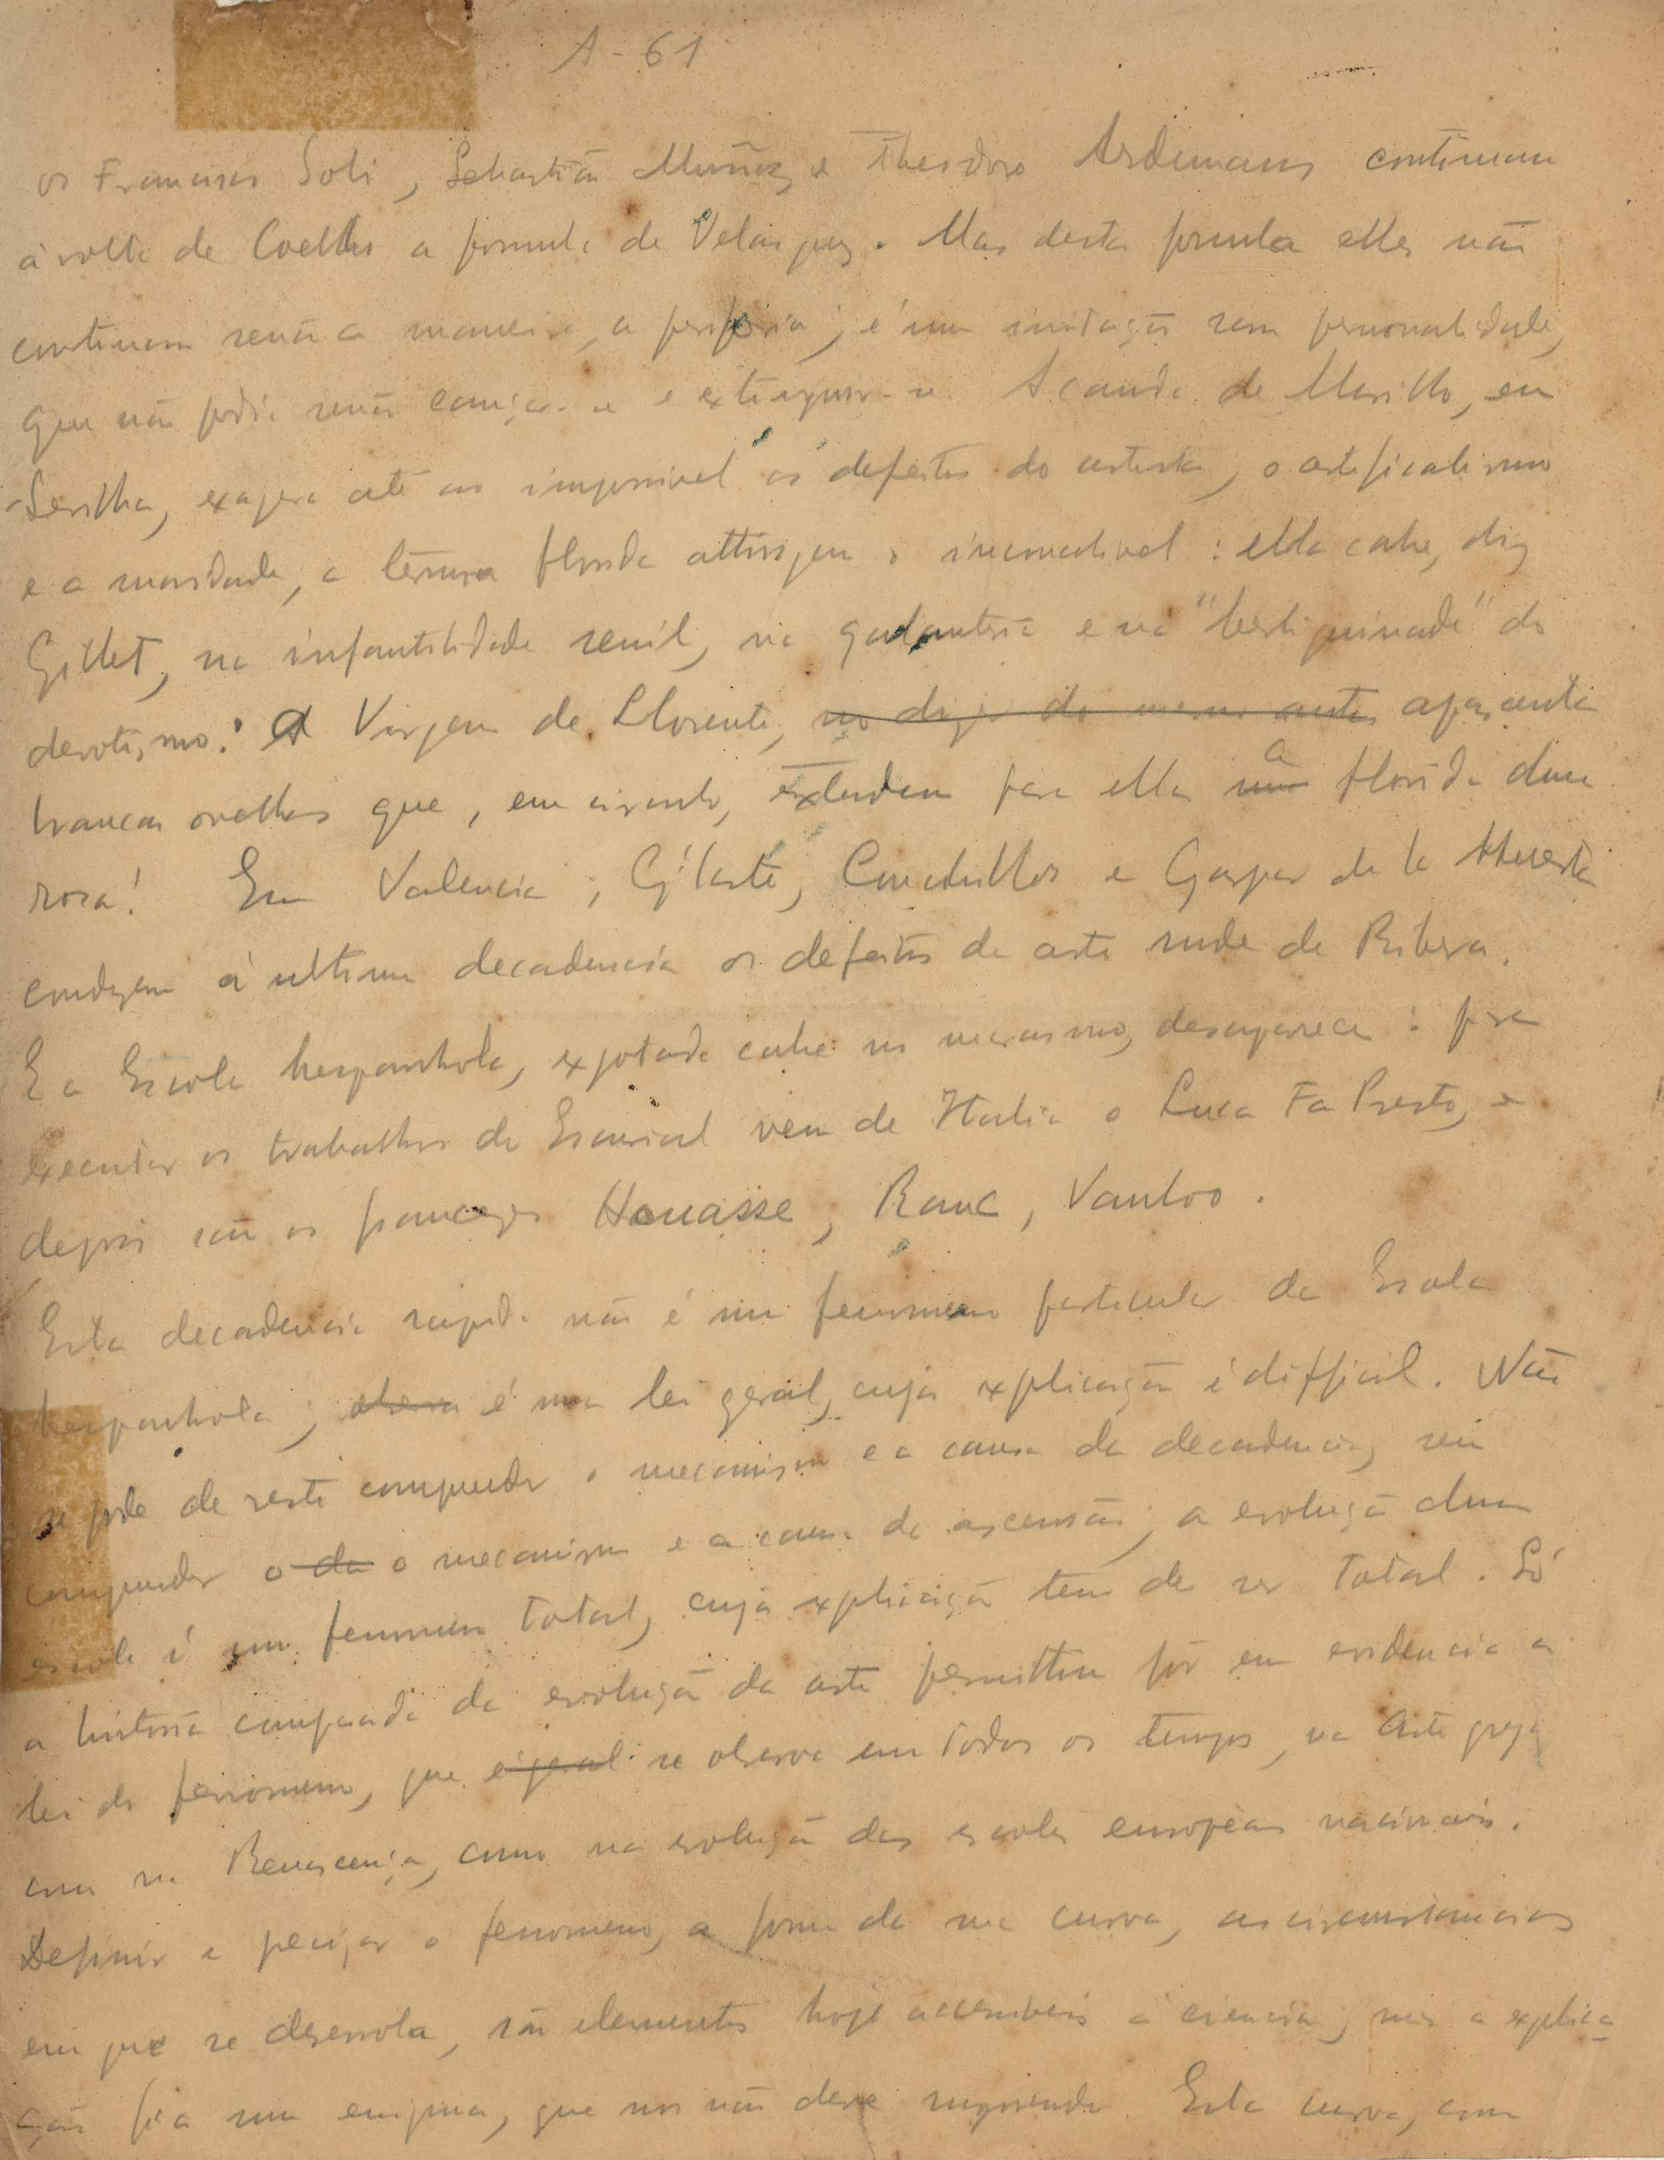 A-61
os Francisco Soli, Sebastião Muñoz, e Theodoro Ardemans continuam
á volta de Coelho a formula de Velasquez. Mas desta formula elles não
continuam senão a maneira, a periferia; é uma imitação sem personalidade,
que não podia senão cançar-se e extinguir-se. A cauda de Murillo, em
Sevilha, exagera até ao impossivel os defeitos do artista, o artificialismo
e a suavidade, a ternura florida attingem o : ella cahe, diz
Gillet, na infantilidade senil, na galanteria e na "berquinade" do
devotismo: A Virgem de Llorente, apascenta
brancas ovelhas que, em circulo, extendem para ella a florida duma
rosa! Em Valencia, Gilarte, Conchillos e Gaspar de la Huerta
conduzem á ultima decadencia os defeitos da arte rude de Ribera.
E a Escola hespanhola, exgotada cahe no marasmo, desaparece : para
executar os trabalhos do Escurial vem de Italia o Luca Fa Presto, e
depois são os francezes Houasse, Ranc, Vanloo.
Esta decadencia rapida não é um fenomeno particular da Escola
hespanhola; é uma lei geral, cuja explicação é difficil. Não
se pode de resto compreender o mecanismo e a causa da decadencia, sem
compreender o mecanismo e a causa da ascensão; a evolução duma
escola é um fenomeno total, cuja explicação tem de ser total. Só
a historia comparada da evolução da arte permittiu pôr em evidencia a
lei do fenomeno, que se observa em todos os tempos, na Arte grega
como na Renascença, como na evolução das escolas européas nacionais.
Definir e precizar o fenomeno, a forma da sua curva, as circumstancias
em que se desenrola, são elementos hoje accessiveis á ciencia; mas a explica
ção fica um enigma, que nos não deve surpreender. Esta curva, com